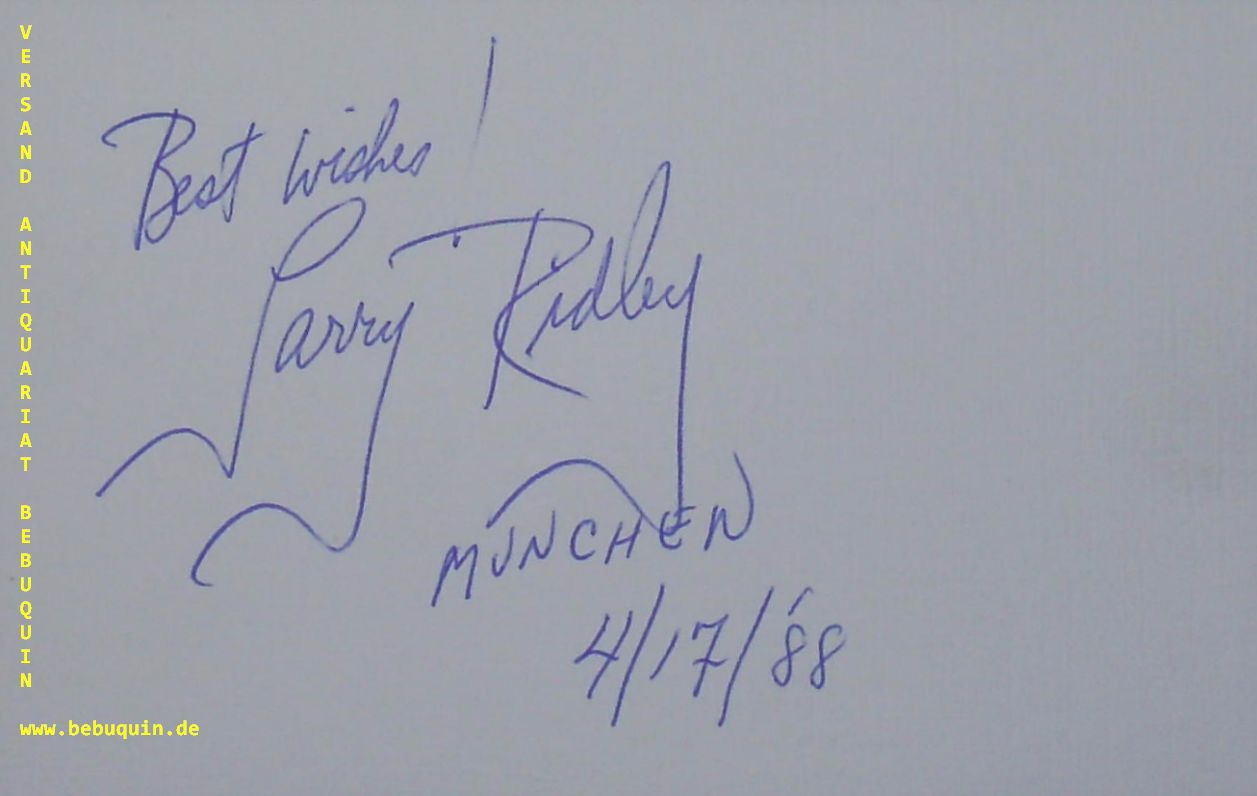 Best wishes!
Larry Ridley
MUNCHEN
4/17/'88
VERSAND ANTIQUARIAT BEBUQUIN
www.bebuquin.de